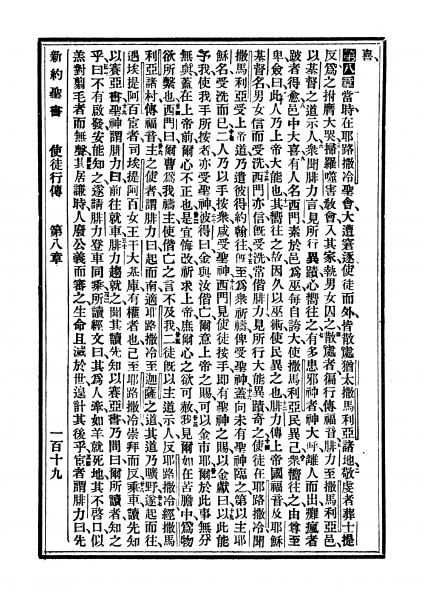 喜
第八章當時在耶路撒冷聖會大遭窘逐使徒而外皆散處猶太撒馬利亞諸地敬虔者葬士提
反爲之拊膺大哭掃羅殘害敎會入其家執男女囚之散處者徧行傳福音腓力至撒馬利亞邑
以基督之道示人衆聞腓力言見所行異蹟心嚮往之有多患邪神者神大呼離人而出癱瘋者
跛者得愈邑中大喜有人名西門素於邑爲巫每自誇大使撒馬利亞民異己衆嚮往之由尊至
卑僉曰此人乃上帝大能也其嚮往之故因久以巫術使民異之也腓力傳上帝國福音及耶穌
基督名男女信而受洗西門亦信旣受洗常偕腓力見所行大能異蹟奇之使徒在耶路撒冷聞
撒馬利亞受上帝道乃遣彼得約翰往旣至爲衆祈禱俾受聖神蓋向未有聖神臨之第以主耶
穌名受洗而已二人乃以手按衆咸受聖神西門見使徒按手卽有聖神之賜以金獻曰以此能
予我使我手所按者亦受聖神彼得曰金與汝偕亡爾意上帝之賜可以金市耶爾於此事無分
無與蓋在上帝前爾心不正也是宜悔改祈求上帝庶爾心之欲可赦我見爾如在苦膽中爲物
欲所繫也西門曰爾曹爲我禱主使偕亡之言不及我二徒旣以主道示人反耶路撒冷經撒馬
利亞諸村傳福音主之使者謂腓力曰起而南適耶路撒冷至迦薩之道其道乃曠野遂起而往
遇埃提阿百宦者司埃提阿百女王干大基庫有權者也已至耶路撒冷崇拜而反乘車讀先知
以賽亞書聖神謂腓力曰前往就車腓力趨就之聞其讀先知以賽亞書乃問曰爾所讀者知之
乎曰不有啟發安能知之遂請腓力登車同乘所讀經文曰其爲人牽如羊就死地其不啓口似
羔對翦毛者而無聲其居謙時人廢公義而審之生命且滅於世遑計其後乎宦者謂腓力曰先
新約聖書 使徒行傳 第八章 一百十九